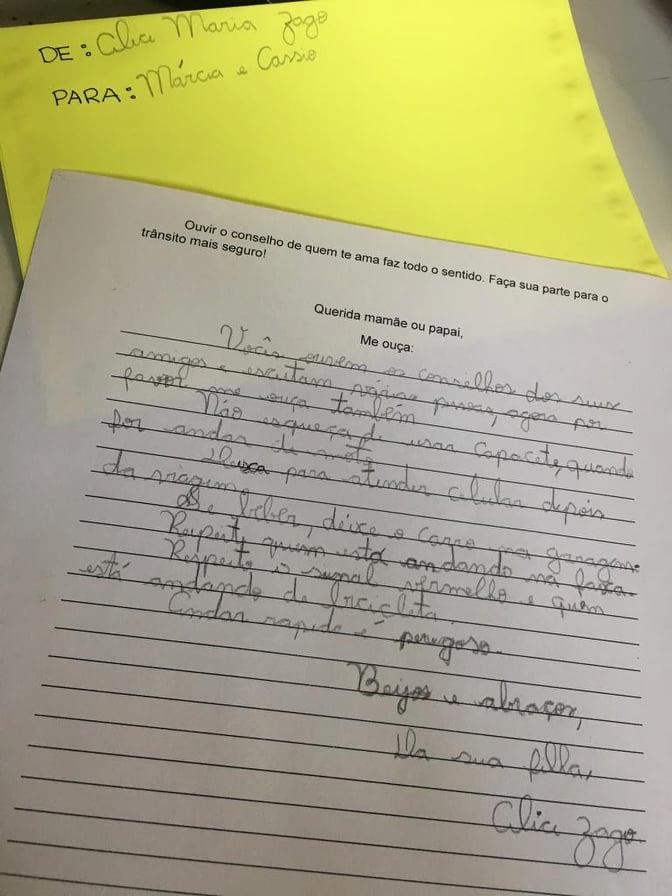 DE: Alice Maria Zago
PARA: Márcia e Cassio
Ouvir o conselho de quem te ama faz todo o sentido. Faça sua parte para o
trânsito mais seguro!
Querida mamãe ou papai,
Me ouça:
Vocês ouvem os conselhos dos seus
amigos e escutam várias pessoas, agora por
favor me ouça também
Não esqueça de usar capacete, quando
for andar de moto
Deixa para atender celular depois
da viagem
Se beber, deixe o carro na garagem.
Respeite quem está andando na faixa.
Respeite o sinal vermelho e quem
está andando de bicicleta.
Andar rapido é perugoso.
Beijos e abraços,
Da sua filha,
Alice Zago